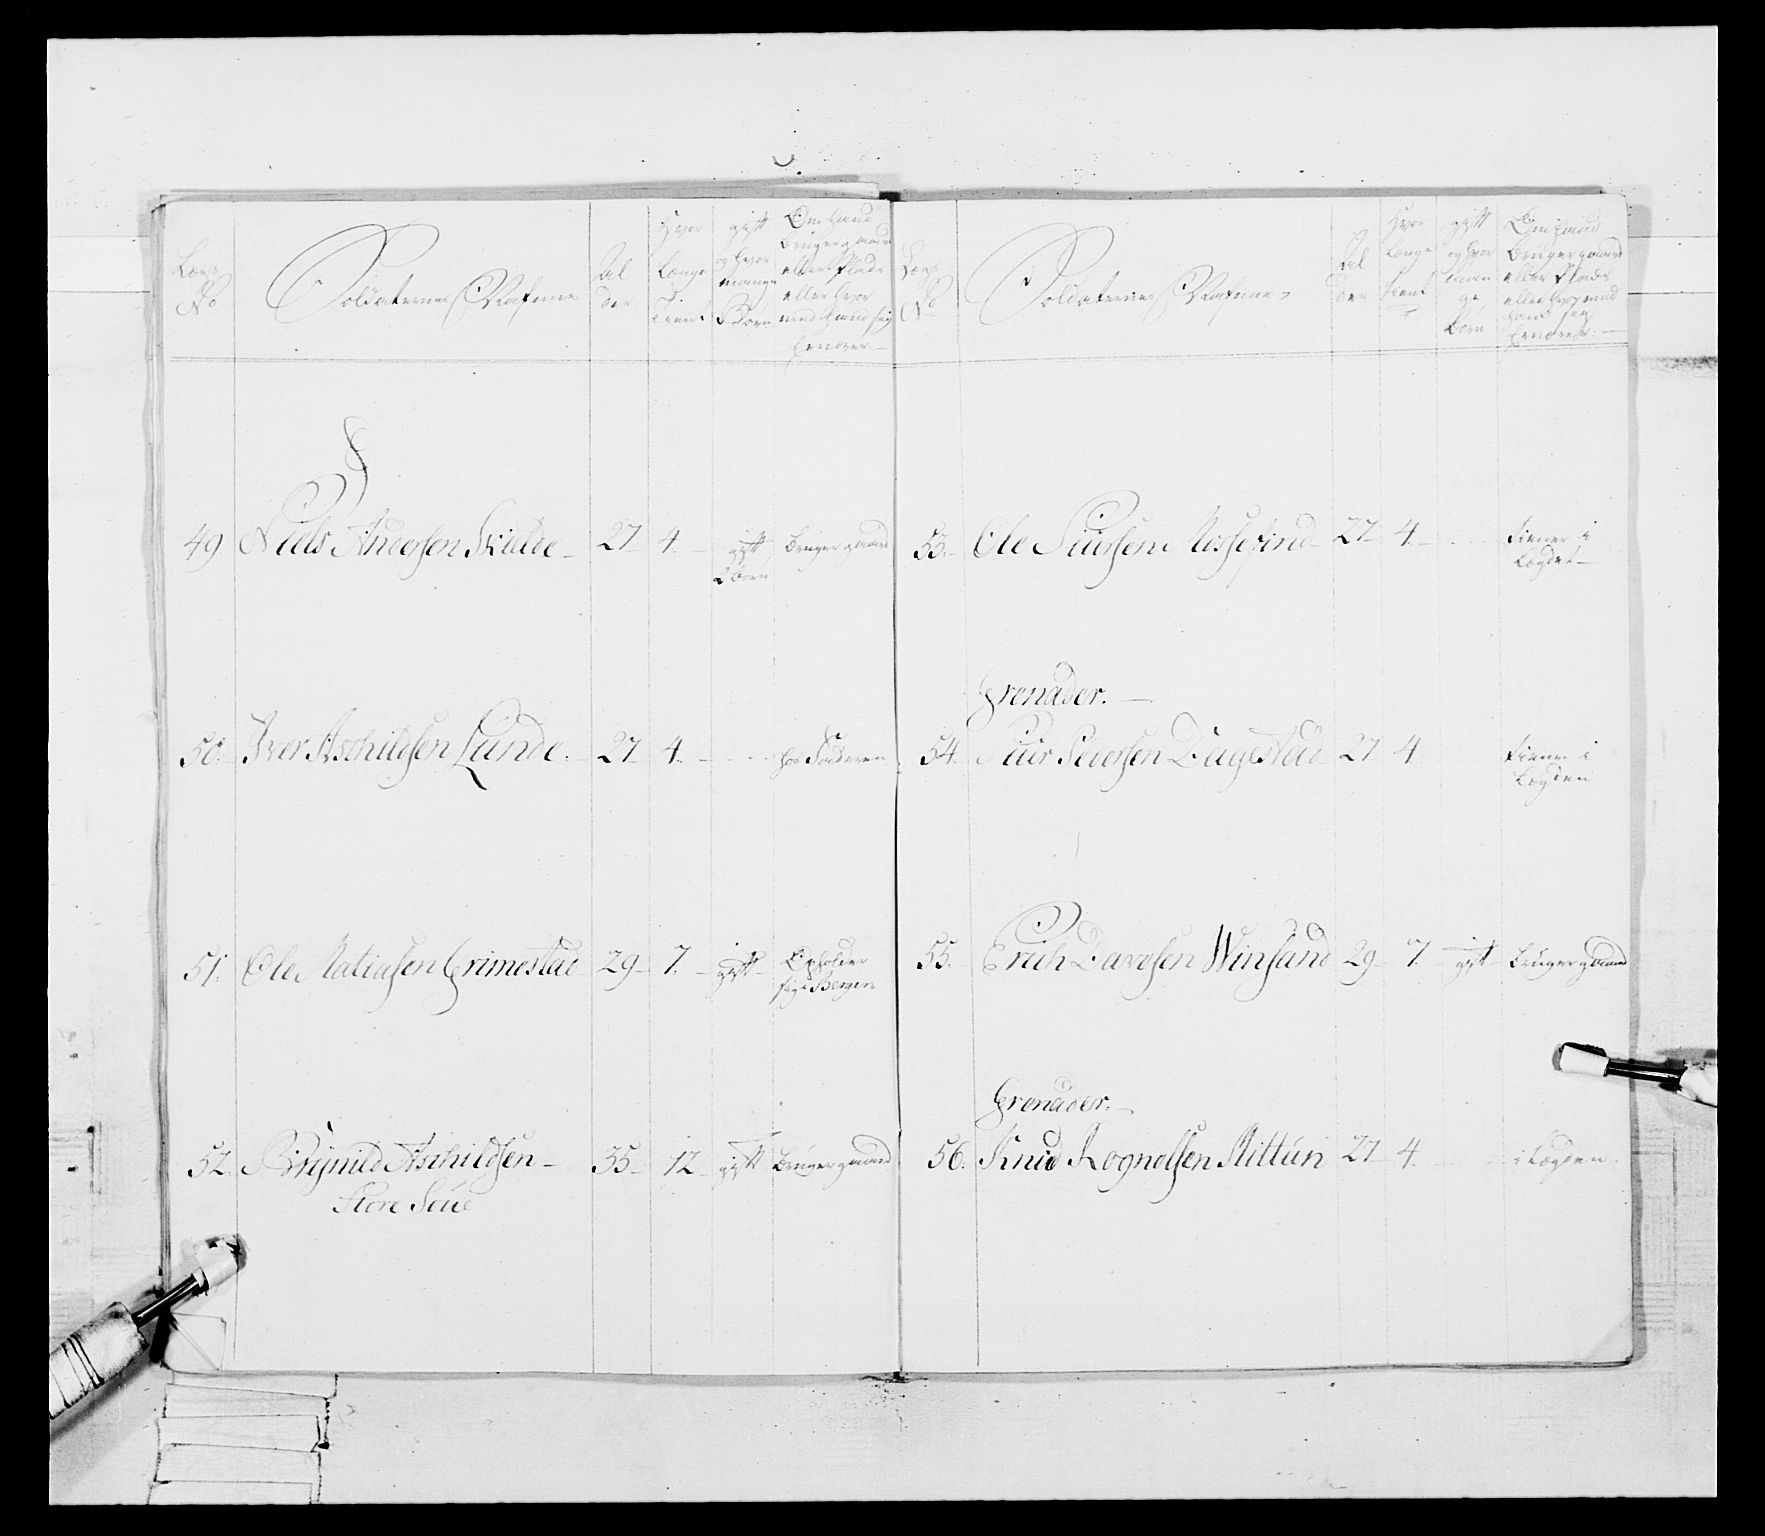 Lægs No
Soldaternes Nafne
Alder
Hvor Længe Tient
gift og hvor mange Børn
Om hand bruger gaard eller Plads eller hvor med hand sig Ernærer
49 Niels Andersen Skielde 27 4. gift 2 børn bruger gaard
50. Iver Aschildsen Lunde. 27 4. hos Faderen
51. Ole Matiasen Grimestad 29 7. gift Opholder sig i Bergen
52. Brynild Aschildsen 35 12 gift bruger gaard
Store Soue
Lægs No
Soldaternes Nafne
Alder
Hvor Længe tient
gift og hvor mange børn
Om hand bruger gaard eller Plads eller hvor med hand sig Ernærer
53. Ole Siursen 27 4. tiener i Lægdet
Grenader.
54. Siur Seversen Dagestad 27 4 tiener i Lægden
55. Erich Davesen Winsand 29 7 gift bruger gaard
Grenader.
56. Knud Rognelsen Mittun 27 4. i Lægden